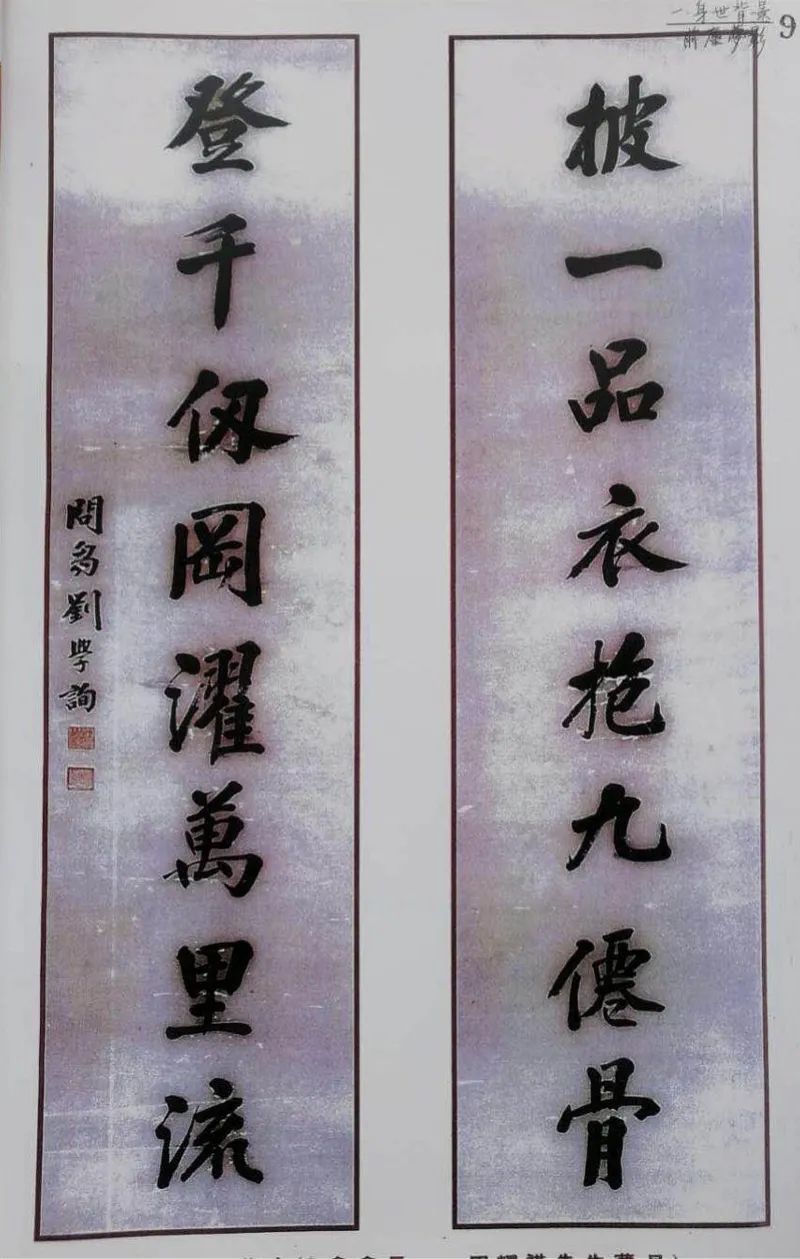 一、身世背景
前塵夢影
9
披一品衣抱九僊骨
登千仞岡濯萬里流
問芻劉學詢